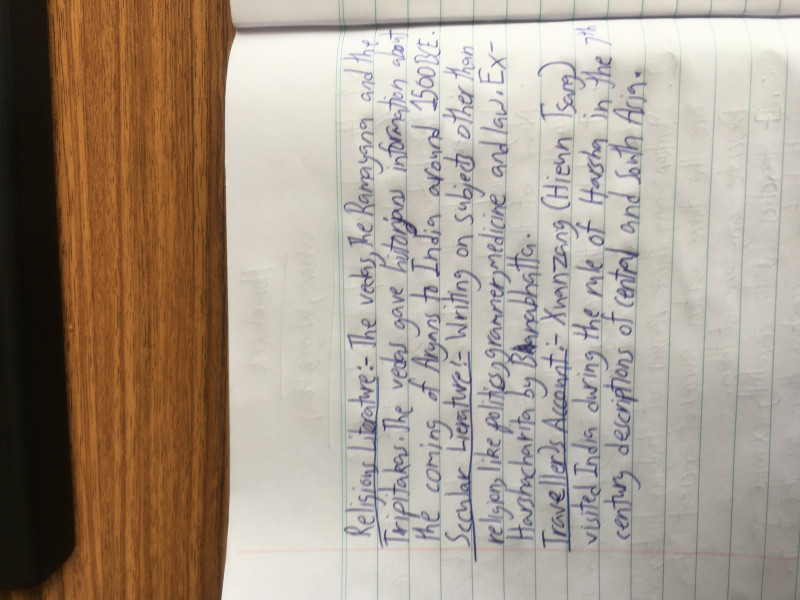 Religious Literature:- The vedas, the Ramayana and the
Tripitakas. The vedas gave hitorians information about
the coming of Aryans to India around 1500BCE.
Secular Literature:- Writing on subject other than
religion, like politics, grammer, medicine and law. Ex-
Harshacharita by Banabhatta.
Traveller's Account:- Xuanzang (Hieun Tsang)
visited India during the rule of Harsha in the 7th
century descriptions of central and South Asia.